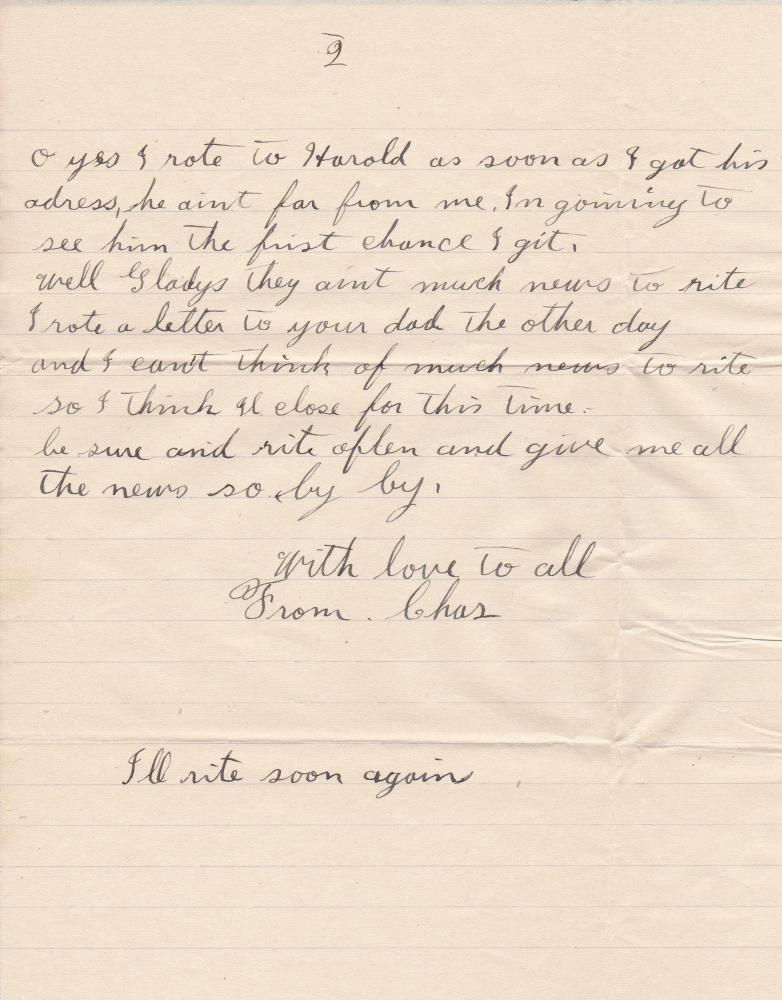 2
O yes I rote to Harold as soon as I got his
adress, he aint far from me. In goining to
see him the first chance I git.
Well Gladys they aint much news to rite
I rote a letter to your dad the other day
and I can't think of much news to rite
so I think Il close for this time.
be sure and rite often and give me all
the news so by by.
With love to all
From. Chas
I'll rite soon again